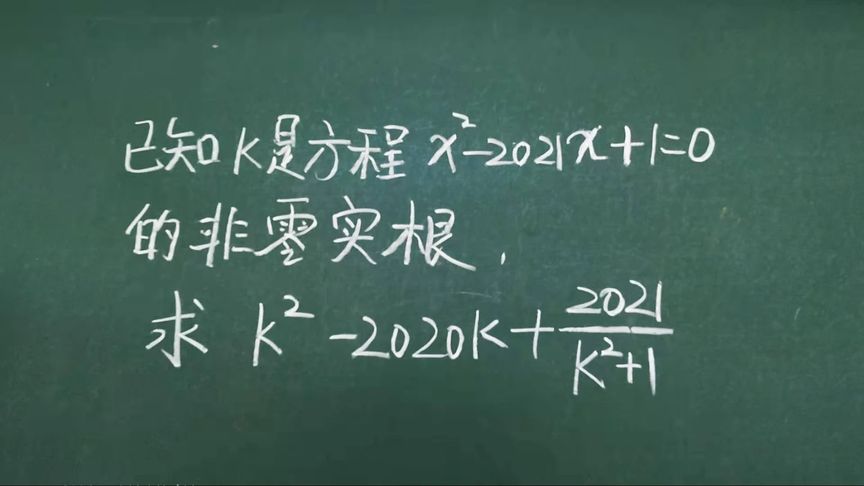 已知K是方程 x²-2021x+1=0
的非零实根.
求 K²-2020K+2021/(K²+1)